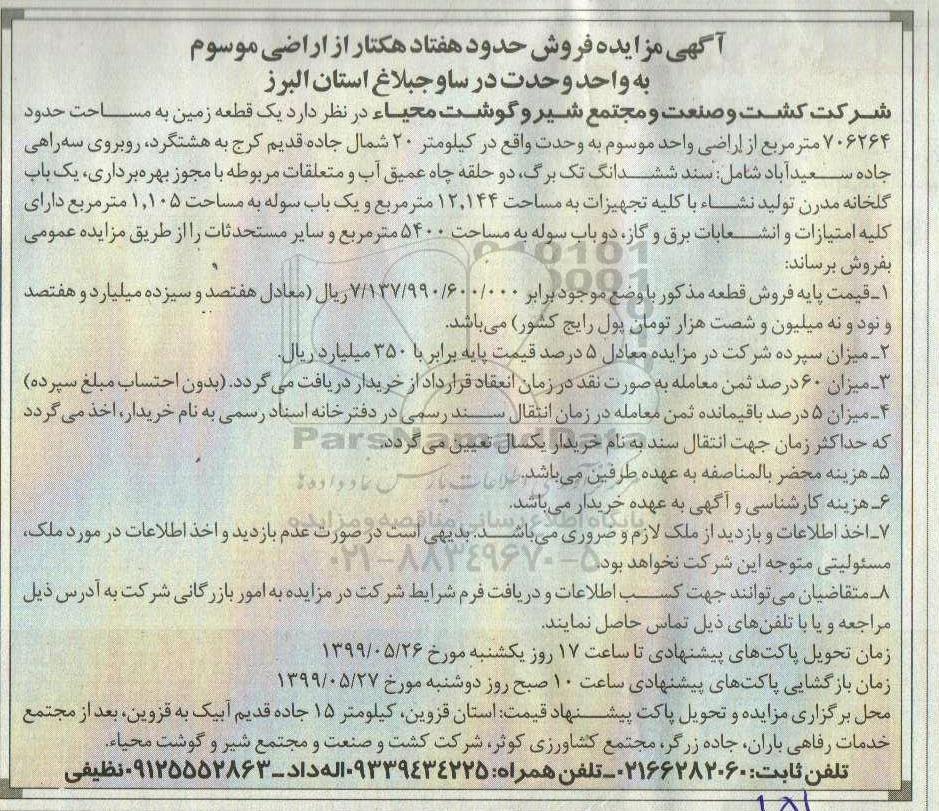 آگهی مزایده فروش حدود هفتاد هکتار از اراضی موسوم
به واحد وحدت در ساوجبلاغ استان البرز
شرکت کشت و صنعت و مجتمع شیر و گوشت محیاء در نظر دارد یک قطعه زمین به مساحت حدود
۷۰۶۲۶۴ مترمربع از اراضی واحد موسوم به وحدت واقع در کیلومتر ۲۰ شمال جاده قدیم کرج به هشتگرد، روبروی سه‌راهی
جاده سعیدآباد شامل: سند ششدانگ تک برگ، دو حلقه چاه عمیق آب و متعلقات مربوطه با مجوز بهره‌برداری، یک باب
گلخانه مدرن تولید نشاء با کلیه تجهیزات به مساحت ۱۲,۱۴۴ مترمربع و یک باب سوله به مساحت ۱,۱۰۵ مترمربع دارای
کلیه امتیازات و انشعابات برق و گاز، دو باب سوله به مساحت ۵۴۰۰ مترمربع و سایر مستحدثات را از طریق مزایده عمومی
بفروش برساند:
۱ـ قیمت پایه فروش قطعه مذکور با وضع موجود برابر ۷/۱۳۷/۹۹۰/۶۰۰/۰۰۰ ریال (معادل هفتصد و سیزده میلیارد و هفتصد
و نود و نه میلیون و شصت هزار تومان پول رایج کشور) می‌باشد.
۲ـ میزان سپرده شرکت در مزایده معادل ۵ درصد قیمت پایه برابر با ۳۵۰ میلیارد ریال.
۳ـ میزان ۶۰ درصد ثمن معامله به صورت نقد در زمان انعقاد قرارداد از خریدار دریافت می‌گردد. (بدون احتساب مبلغ سپرده)
۴ـ میزان ۵ درصد باقیمانده ثمن معامله در زمان انتقال سند رسمی در دفترخانه اسناد رسمی به نام خریدار، اخذ می‌گردد
که حداکثر زمان جهت انتقال سند به نام خریدار یکسال تعیین می‌گردد.
۵ـ هزینه محضر بالمناصفه به عهده طرفین می‌باشد.
۶ـ هزینه کارشناسی و آگهی به عهده خریدار می‌باشد.
۷ـ اخذ اطلاعات و بازدید از ملک لازم و ضروری می‌باشد. بدیهی است در صورت عدم بازدید و اخذ اطلاعات در مورد ملک،
مسئولیتی متوجه این شرکت نخواهد بود.
۸ـ متقاضیان می‌توانند جهت کسب اطلاعات و دریافت فرم شرایط شرکت در مزایده به امور بازرگانی شرکت به آدرس ذیل
مراجعه و یا با تلفن‌های ذیل تماس حاصل نمایند.
زمان تحویل پاکت‌های پیشنهادی تا ساعت ۱۷ روز یکشنبه مورخ ۱۳۹۹/۰۵/۲۶
زمان بازگشایی پاکت‌های پیشنهادی ساعت ۱۰ صبح روز دوشنبه مورخ ۱۳۹۹/۰۵/۲۷
محل برگزاری مزایده و تحویل پاکت پیشنهاد قیمت: استان قزوین، کیلومتر ۱۵ جاده قدیم آبیک به قزوین، بعد از مجتمع
خدمات رفاهی باران، جاده زرگر، مجتمع کشاورزی کوثر، شرکت کشت و صنعت و مجتمع شیر و گوشت محیاء.
تلفن ثابت: ۰۲۱۶۶۲۸۲۰۶۰ ـ تلفن همراه: ۰۹۳۳۹۴۳۴۲۲۵ اله‌داد ـ ۰۹۱۲۵۵۵۲۸۶۳ نظیفی
ParsNamadData
پایگاه اطلاع رسانی مناقصه و مزایده
۰۲۱-۸۸۳۴۹۶۷۰-۵